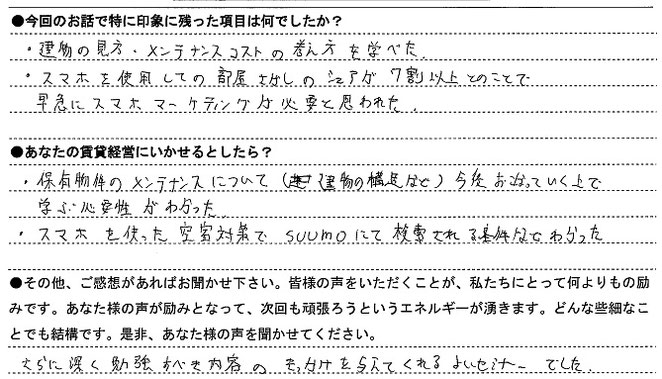 ●今回のお話で特に印象に残った項目は何でしたか？
・建物の見方・メンテナンスコストの考え方を学べた.
・スマホを使用しての部屋さがしのシェアが7割以上とのことで
早急にスマホマーケティングが必要と思われた.
●あなたの賃貸経営にいかせるとしたら？
・保有物件のメンテナンスについて(建物の構造など)今後お造っていく上で
学ぶ必要性がわかった
・スマホを使った空室対策でSUUMOにて検索される条件などわかった
●その他、ご感想があればお聞かせ下さい。皆様の声をいただくことが、私たちにとって何よりもの励
みです。あなた様の声が励みとなって、次回も頑張ろうというエネルギーが湧きます。どんな些細なこ
とでも結構です。是非、あなた様の声を聞かせてください。
さらに深く勉強すべき内容のきっかけを与えてくれるよいセミナーでした.